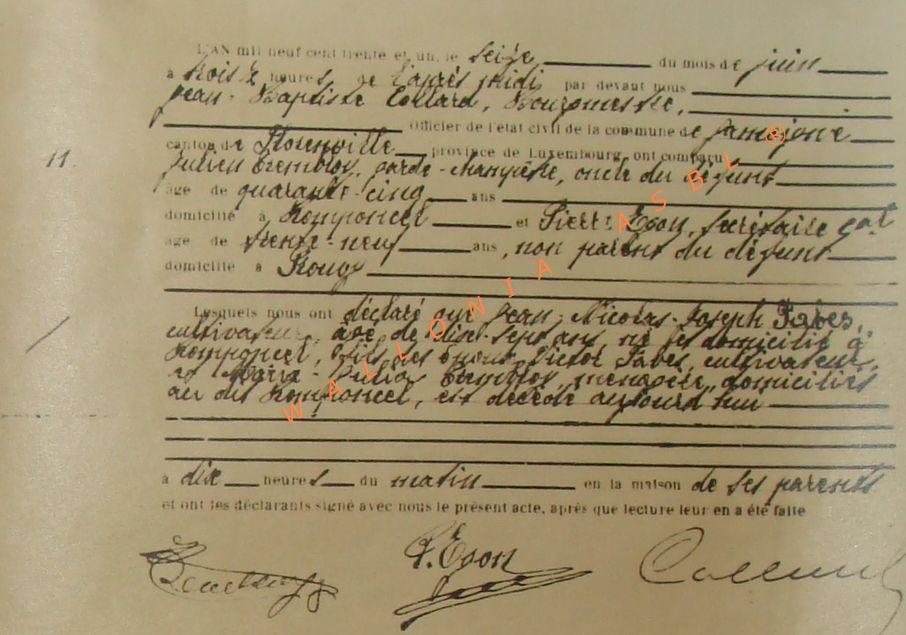 L'AN mil neuf cent trente et un, le seize du mois de juin
à trois heures de l'après midi par devant nous
Jean-Baptiste Collard, Bourgmestre,
Officier de l'état civil de la commune de Jamoigne
canton de Florenville province de Luxembourg, ont comparu
Julien Trembloy, garde-champêtre, oncle du défunt
âge de quarante-cinq ans
domicilié à Romponcel et Pierre Egon, secrétaire cal
âge de trente-neuf ans, non parent du défunt
domicilié à
11.
Lesquels nous ont déclaré que Jean-Nicolas-Joseph Fabes,
cultivateur, âgé de dix-sept ans, né et domicilié à
Romponcel, fils des époux Victor Fabes, cultivateur,
et Marie-Julia Trembloy, ménagère, domiciliés
au dit Romponcel, est décédé aujourd'hui
à dix heures du matin en la maison de ses parents
et ont les déclarants signé avec nous le présent acte, après que lecture leur en a été faite
WALLONIA ASBL ©